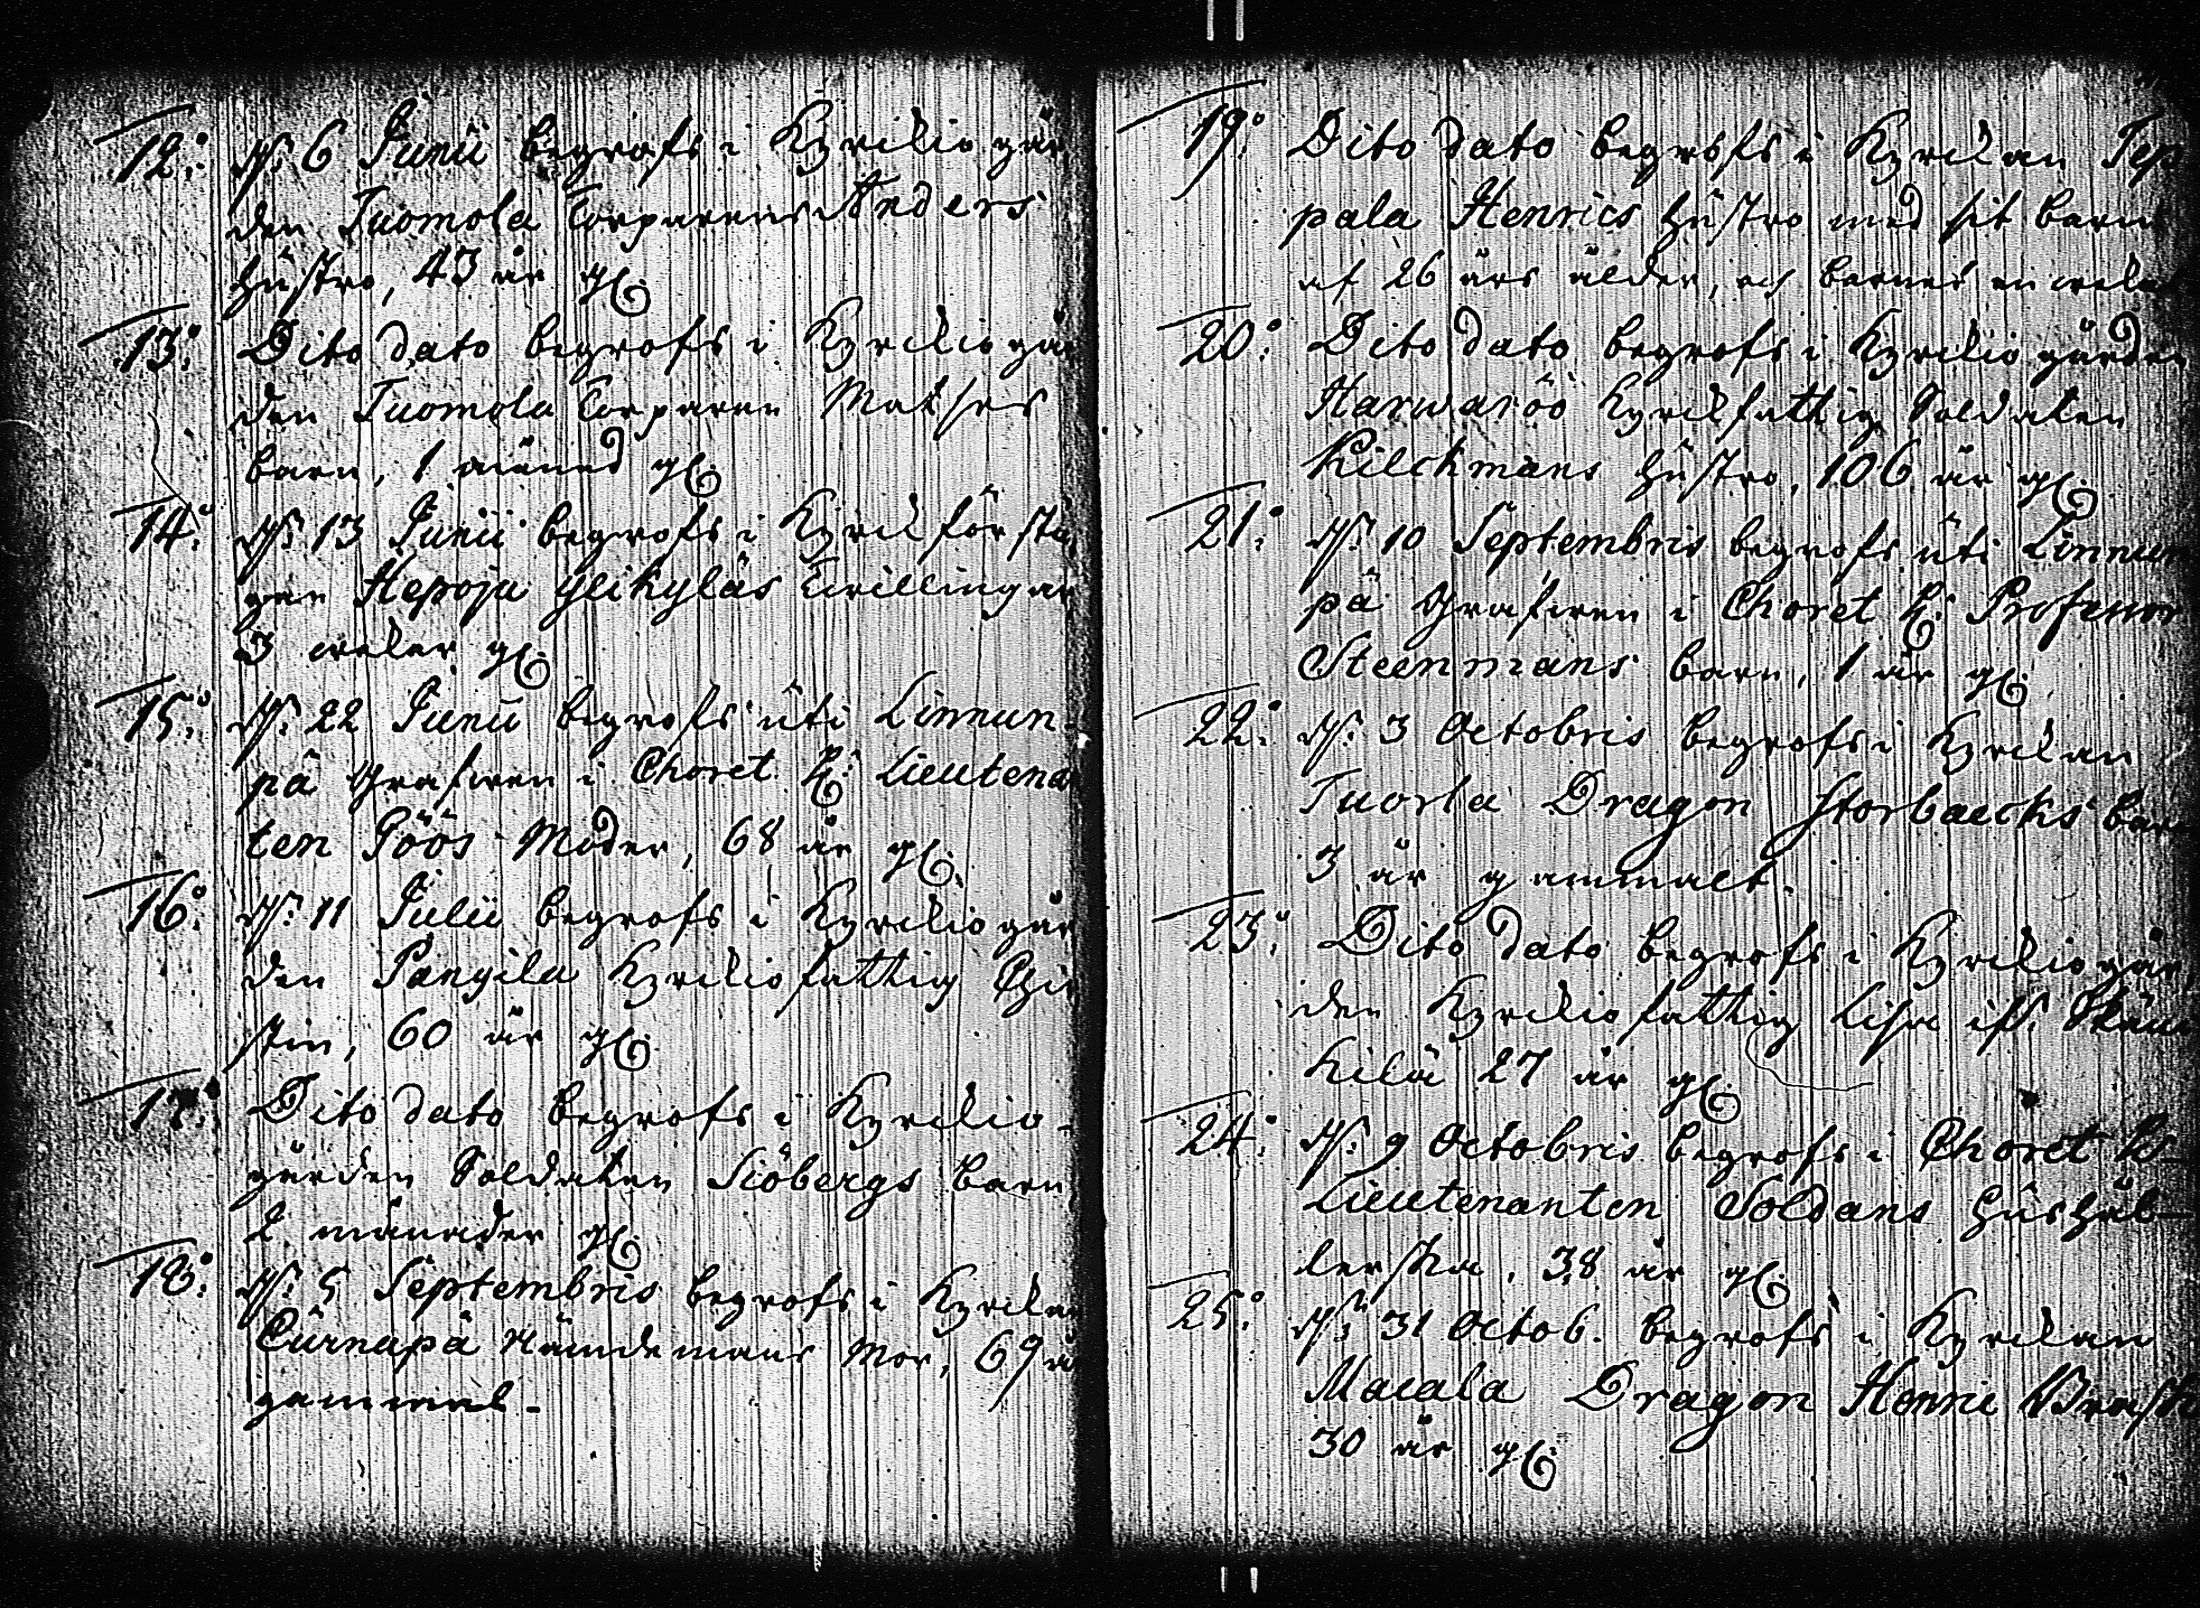 12. d. 6 Junii begrofs i Kyrckio går
den Tuomola Torparens Anders
hustro, 43 år gl.
13. Dito dato begrofs i Kyrckio går
den Tuomola Torparen Matses
barn, 1 månad gl.
14. d. 13 Junii begrofs i Kyrckförstu
gun Hepoju ylikyläs Twillingar
3 wekor gl.
15. d. 22 Junii begrofs uti Linnun-
på Grafwen i Choret H. Lieutena
ten Göös Moder, 68 år gl.
16. d. 11 Julii begrofs i Kyrckio går
den Pangila Kyrckiofattig Chri
stin, 60 år gl.
17. Dito dato begrofs i Kyrckio-
gården Soldaten Siöbergs barn
2 månader gl.
18. d. 5 Septembris begrofs i Kyrckan
Curnapä Nämdemans Mor, 69 å
gammal.
19. Dito dato begrofs i Kyrckan Tep
pala Henrics hustro med sit barn
af 26 års ålder, och barnet en weka
20. Dito dato begrofs i Kyrckio gården
Harwaröö Kyrckfattig Soldaten
Kilckmans hustro, 106 år gl.
21. d. 10 Septembris begrofs uti Linnun
på Grafwen i Choret H. Professor
Steenmans barn, 1 år gl.
22. d. 3 Octobris begrofs i Kyrckan
Tuorla Dragon Storbaecks bar
3 år gammalt.
23. Dito dato begrofs i Kyrckio går
den Kyrckiofattig Lisa ifr.
kilä 27 år gl.
24. d. 9 Octobris begrofs i Choret H.
Lieutenanten Soldans hushål-
lerska, 38 år gl.
25. d. 31 Octob. begrofs i Kyrckan
Macala Dragon Henric
30 år gl.